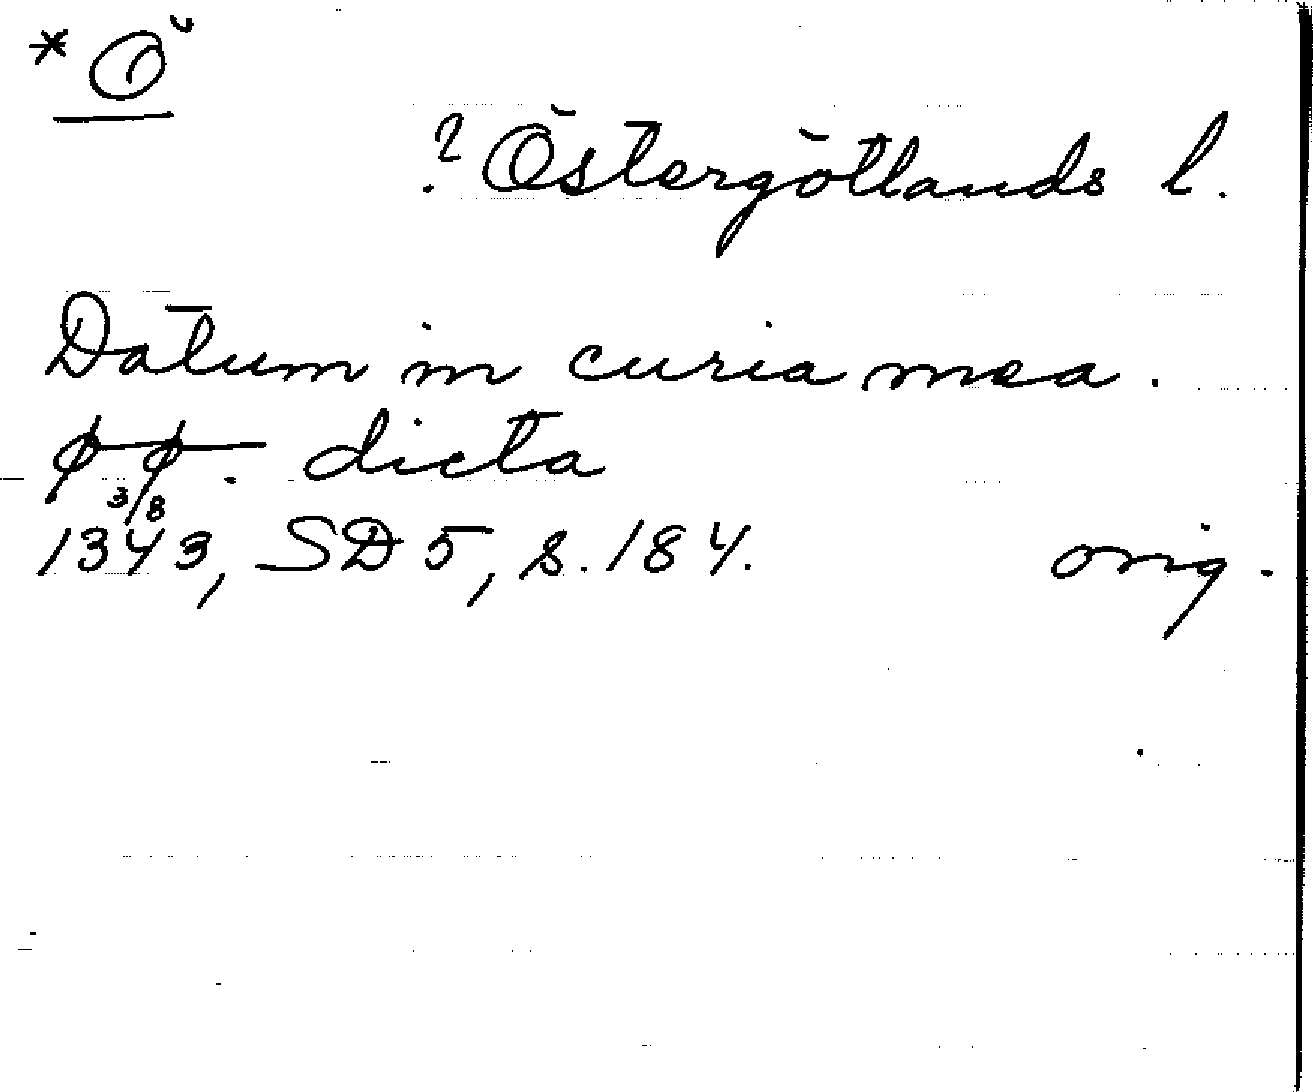 * Ö
? Östergötlands l.
Datum in curia mea.
øø. dicta
3/8
1343, SD 5, s. 184. orig.